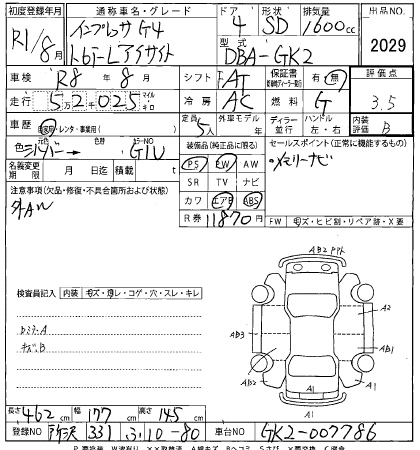 初度登録年月 通称車名・グレード ドア 形状 排気量 出品NO.
R1/8月 インプレッサ G4 4 SD 1600cc 2029
1.6i-Lアイサイト 型式 DBA-GK2
車検 R8年8月 シフト AT 保証書 有・無 評価点
走行 52025 マイル キロ 冷房 AC 燃料 G 3.5
車歴 自家用・レンタ・事業用( ) 定員 5人 外車年モデル ディーラー 並行 ハンドル 左・右 内装評価 B
色 シルバー→ 元色 色替 カラーNO G1U 装備品(純正品に限る) セールスポイント(正常に機能するもの)
名義変更期限 月 日迄 積載 t PS PW AW メモリーナビ
注意事項(欠品・修復・不具合箇所および状態) SR TV ナビ
外AW カワ エアB ABS
R券 11870円 FW 毛ズ・ヒビ割・リペア跡・X要
検査員記入 内装 毛ズ・凹レ・コゲ・穴・スレ・キレ
AB2
A2
AB3
AB1
AB2
A1
A1
キズ.B
長さ 462cm 幅 177cm 高さ 145cm
登録NO 所沢 331 ふ 10-80 車台NO GK2-007786